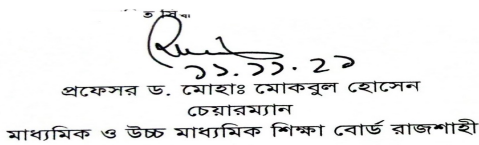 ১১.১১.২১
প্রফেসর ড. মোহাঃ মোকবুল হোসেন
চেয়ারম্যান
মাধ্যমিক ও উচ্চ মাধ্যমিক শিক্ষা বোর্ড রাজশাহী